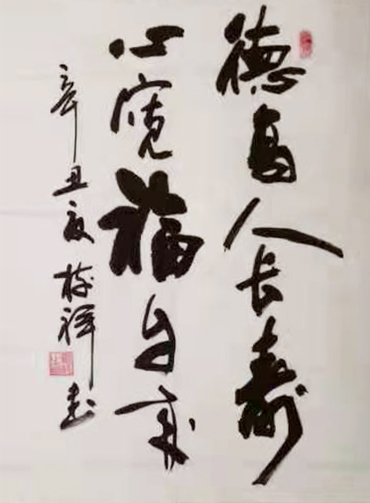 德高人长寿
心宽福自来
辛丑夏 树祥书